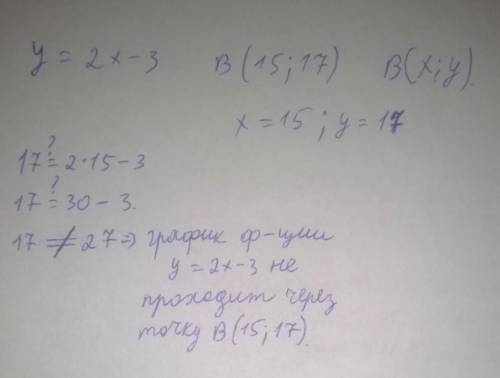 y = 2x-3 B(15;17) B(x;y).
x=15; y=17
17 ?= 2·15-3
17 ?= 30-3.
17 ≠ 27 => график ф-ции
y=2x-3 не
проходит через
точку B(15;17)